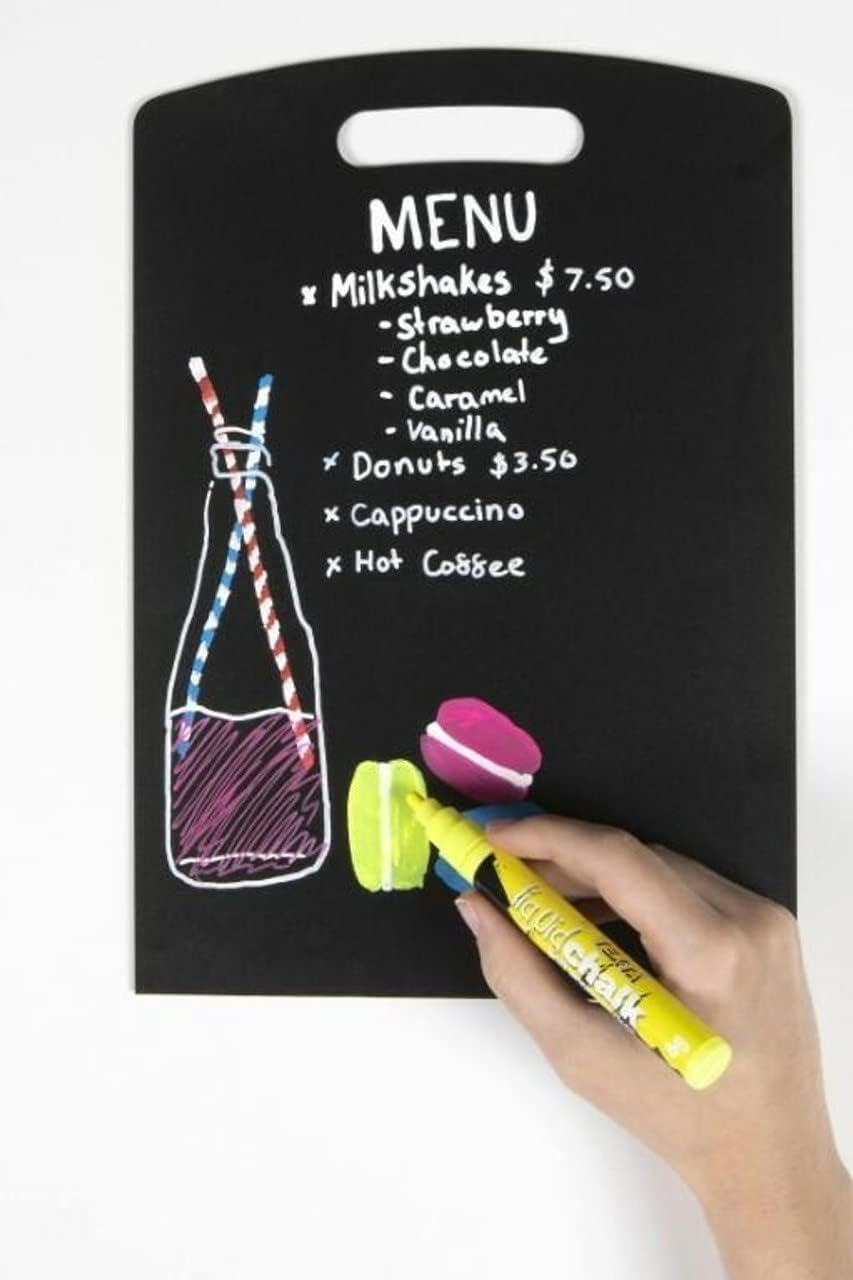 MENU
x Milkshakes $7.50
- Strawberry
- Chocolate
- Caramel
- Vanilla
x Donuts $3.50
x Cappuccino
x Hot Coffee
liquid chalk